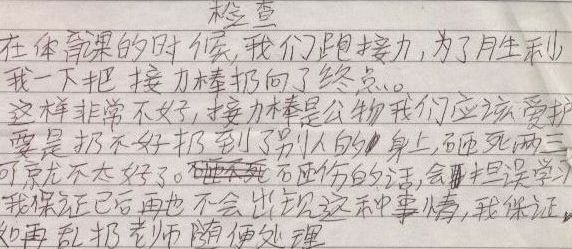 检查
在体育课的时候,我们跑接力,为了胜利
我一下把接力棒扔向了终点。
这样非常不好,接力棒是公物我们应该爱护
要是扔不好扔到了别人的身上,砸死两三
可就不太好了。砸伤的话,会担误学
我保证已后再也不会出现这种事情,我保证
如再乱扔老师随便处理